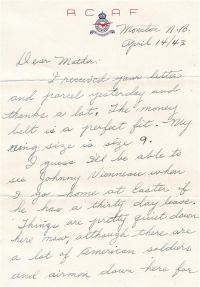 R C A F
Moncton N.B.
April 14/43
Dear Mother:
I received your letter
and parcel yesterday and
thanks a lot. The money
belt is a perfect fit. My
ring size is size 9.
I guess I'll be able to
see Johnny Vienneau when
I go home at Easter if
he has a thirty day leave.
Things are pretty quiet down
here now, although there are
a lot of American soldiers
and airmen down here for